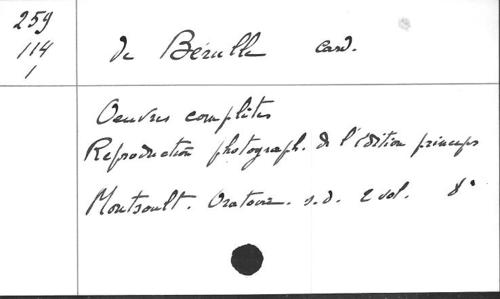 259
114
1
de Bérulle card.
Oeuvres complètes
Reproduction photograph. de l'édition princeps
Montsoult. Oratoire. s.d. 2 vol. 8°